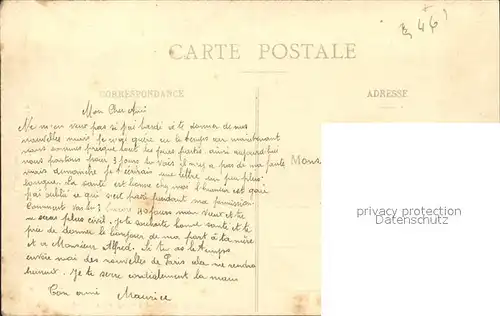 46
CARTE POSTALE
CORRESPONDANCE
ADRESSE
Mon Cher Ami
Ne m'en veut pas si j'ai tardé à te donner de mes
nouvelles mais je n'ai guère eu le temps car maintenant
nous sommes presque tout les jours partis ainsi aujourd'hui
nous partons pour 3 jours tu vois il n'y a pas de ma faute
mais dimanche je t'écrirais une lettre un peu plus
longue. La santé est bonne chez moi l'humeur est gaie
j'ai oublié ce qui s'est passé pendant ma permission.
Comment vas tu? encore jours mon vieux et tu
ne seras plus civil. Je te souhaite bonne santé et te
prie de donner le bonjour de ma part à ta mère
et à Monsieur Alfred. Si tu as le temps
envoie moi des nouvelles de Paris cela me rendra
heureux. Je te serre cordialement la main
Ton ami Maurice
Mons
privacy protection
Datenschutz